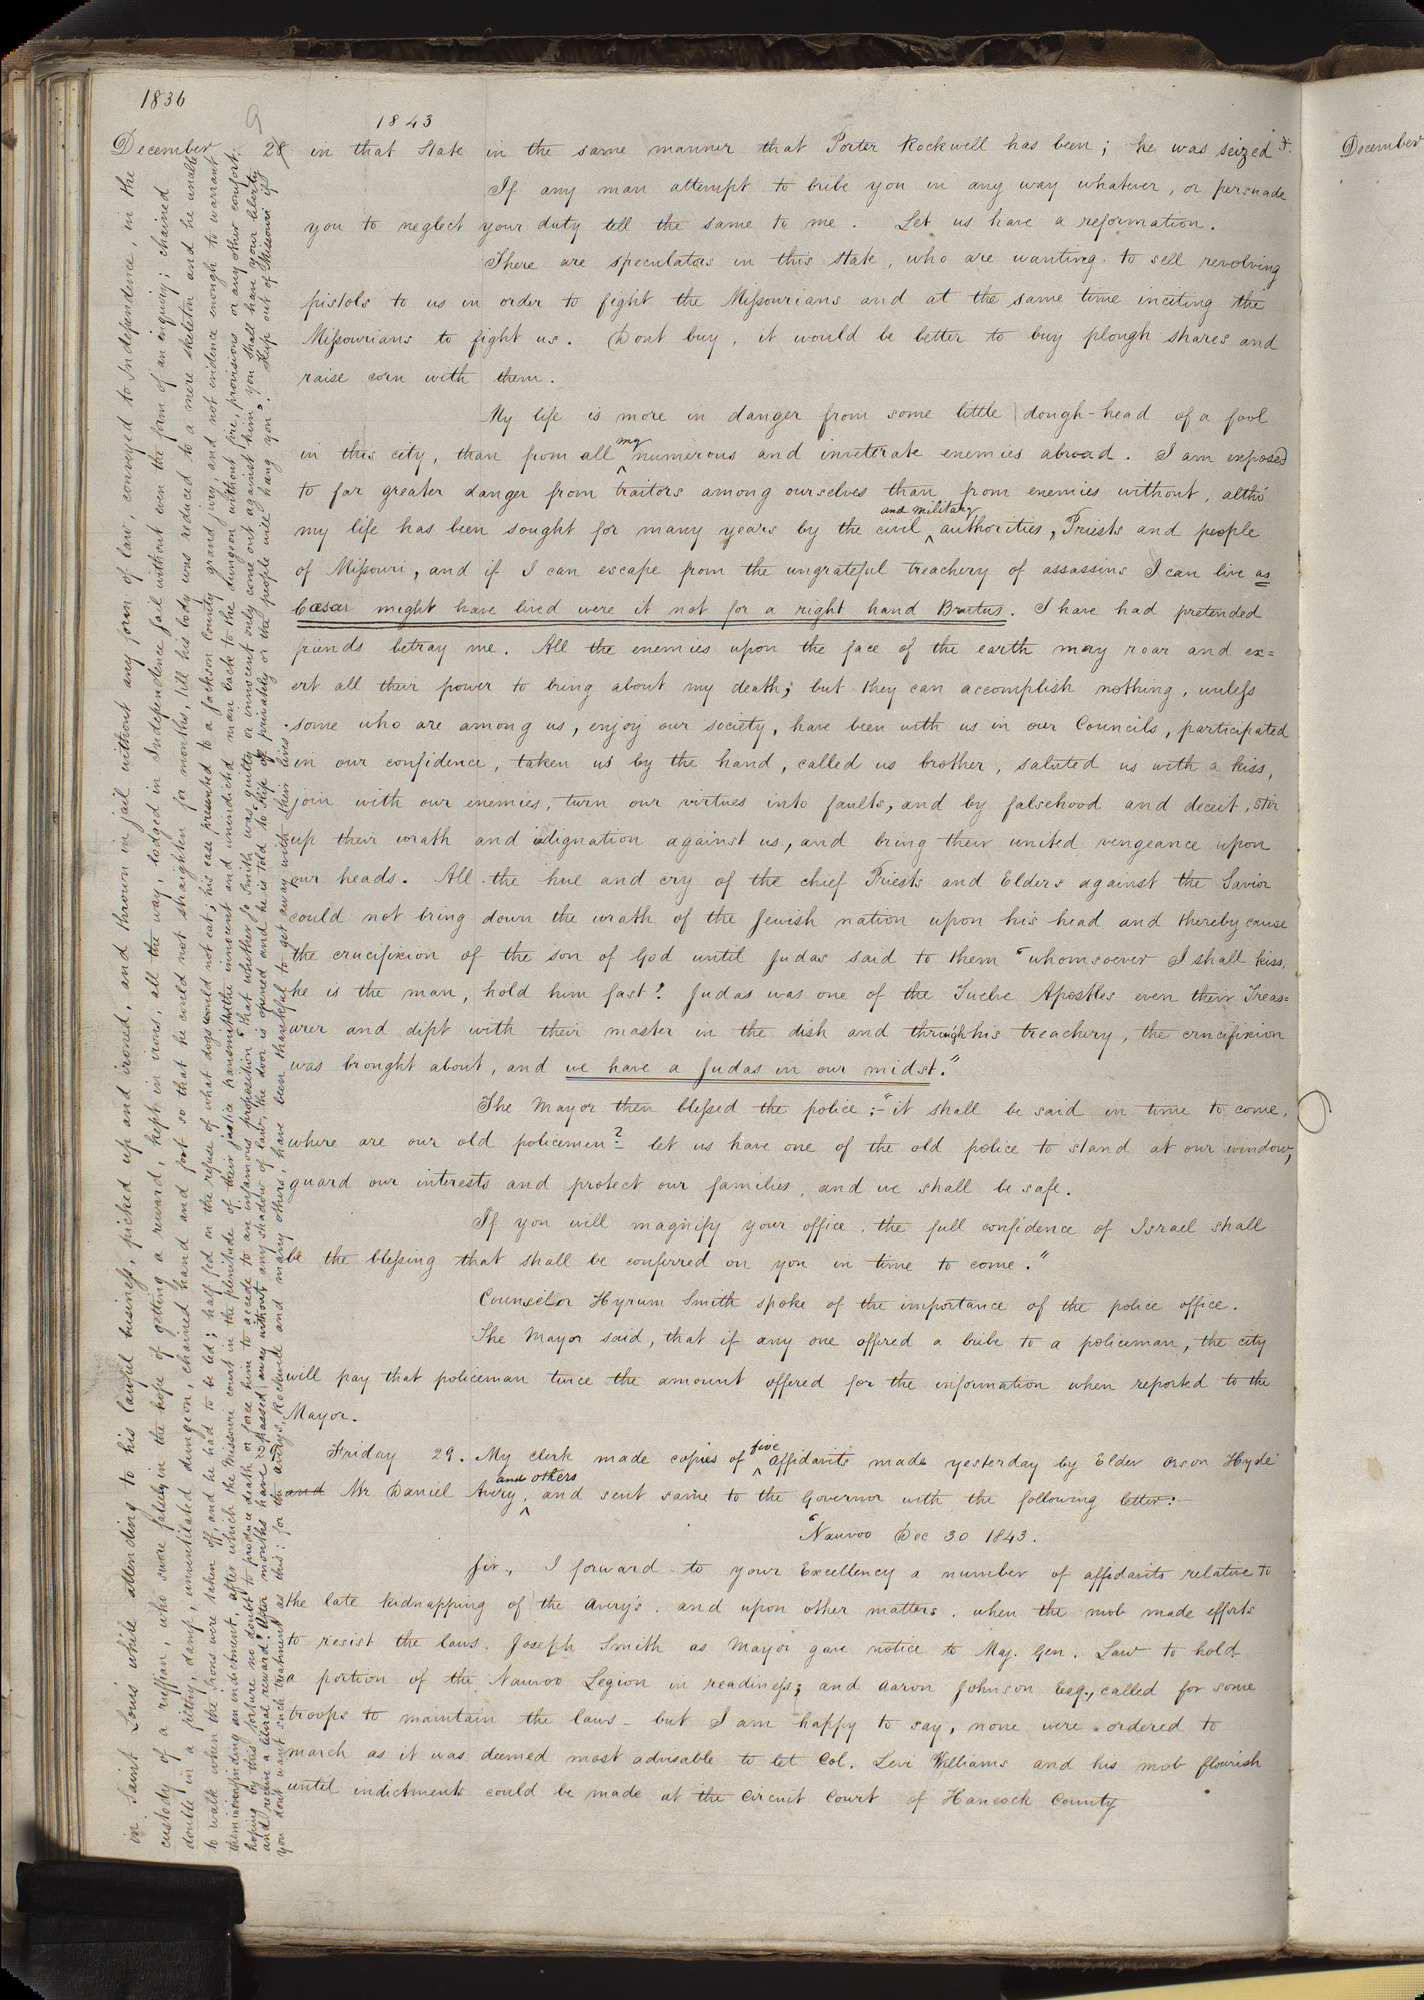 1836
1843
December 28 in that State in the same manner that Porter Rockwell has been; he was seized *.
If any man attempt to bribe you in any way whatever, or persuade
you to neglect your duty tell the same to me. Let us have a reformation.
There are speculators in this state, who are wanting to sell revolving
pistols to us in order to fight the Missourians and at the same time inciting the
Missourians to fight us. Dont buy, it would be better to buy plough shares and
raise corn with them.
My life is more in danger from some little dough-head of a fool
in this city, than from all my numerous and inveterate enemies abroad. I am exposed
to far greater danger from traitors among ourselves than from enemies without, altho'
my life has been sought for many years by the civil and military authorities, Priests and people
of Missouri, and if I can escape from the ungrateful treachery of assassins I can live as
Caesar might have lived were it not for a right hand Brutus. I have had pretended
friends betray me. All the enemies upon the face of the earth may roar and ex=
ert all their power to bring about my death; but they can accomplish nothing, unless
some who are among us, enjoy our society, have been with us in our Councils, participated
in our confidence, taken us by the hand, called us brother, saluted us with a kiss,
join with our enemies, turn our virtues into faults, and by falsehood and deceit, stir
up their wrath and indignation against us, and bring their united vengeance upon
our heads. All the hue and cry of the chief Priests and Elders against the Savior
could not bring down the wrath of the Jewish nation upon his head and thereby cause
the crucifixion of the son of God until Judas said to them "whomsoever I shall kiss,
he is the man, hold him fast". Judas was one of the Twelve Apostles even their Treas=
urer and dipt with their master in the dish and through his treachery, the crucifixion
was brought about, and we have a Judas in our midst."
The Mayor then blessed the police:- "it shall be said in time to come,
where are our old policemen? let us have one of the old police to stand at our window,
guard our interests and protect our families, and we shall be safe.
If you will magnify your office, the full confidence of Israel shall
be the blessing that shall be conferred on you in time to come."
Counselor Hyrum Smith spoke of the importance of the police office.
The Mayor said, that if any one offered a bribe to a policeman, the city
will pay that policeman twice the amount offered for the information when reported to the
Mayor.
Friday 29. My clerk made copies of five affidavits made yesterday by Elder Orson Hyde
and Mr Daniel Avery, and others and sent same to the Governor with the following letter:-
"Nauvoo Dec 30 1843.
Sir, I forward to your Excellency a number of affidavits relative to
the late kidnapping of the Avery's, and upon other matters, when the mob made efforts
to resist the laws. Joseph Smith as Mayor gave notice to Maj. Gen. Law to hold
a portion of the Nauvoo Legion in readiness; and Aaron Johnson Esq., called for some
troops to maintain the laws - but I am happy to say, none were ordered to
march as it was deemed most advisable to let Col. Levi Williams and his mob flourish
until indictments could be made at the Circuit Court of Hancock County
in Saint Louis while attending to his lawful business, picked up and ironed, and thrown in jail without any form of law conveyed to Independence, in the
custody of a ruffian, who swore falsely in the hope of getting a reward, kept in irons, all the way, lodged in Independence jail without even the form of an enquiry; chained
double in a filthy, damp, unventilated dungeon, chained hand and foot so that he could not straighten for months, till his body was reduced to a mere skeleton and he unable
to walk when the irons were taken off, and he had to be led; half fed on the refuse of what dogs would not eat; his case presented to a Jackson County grand jury, and not evidence enough to warrant
them in finding an indictment, after which the Missouri court in the plenitude of their justice transmit the innocent and unindicted man back to the dungeon without fire, provisions or any other comfort;
hoping by this torture no doubt to produce death or force him to accede to an infamous proposition "that whether Jo Smith was guilty or innocent only come out against him, you shall have your liberty
and receive a liberal reward." After months have passed away without any shadow of law, the door is opened and he is told to "slip off privately or the people will hang you". Keep out of Missouri if
you dont want such treatment as this: for the Averys, Rockwell and many others, have been thankful to get away with their lives.
December